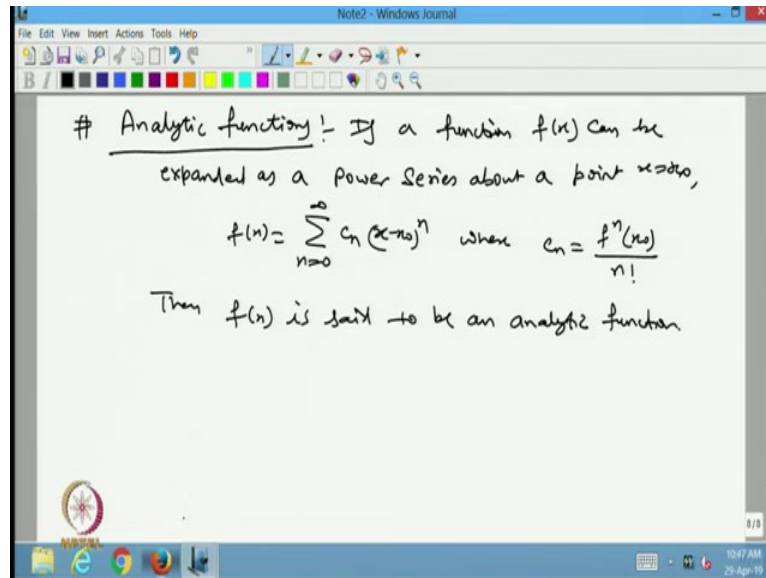 Note2 - Windows Journal
File Edit View Insert Actions Tools Help
# Analytic functions :- If a function f(x) can be
expanded as a power series about a point x=x₀,
f(x) = ∞∑n=0 cₙ (x-x₀)ⁿ where cₙ = fⁿ(x₀)/n!
Then f(x) is said to be an analytic function.
NPTEL
8/8
10:47 AM
29-Apr-19